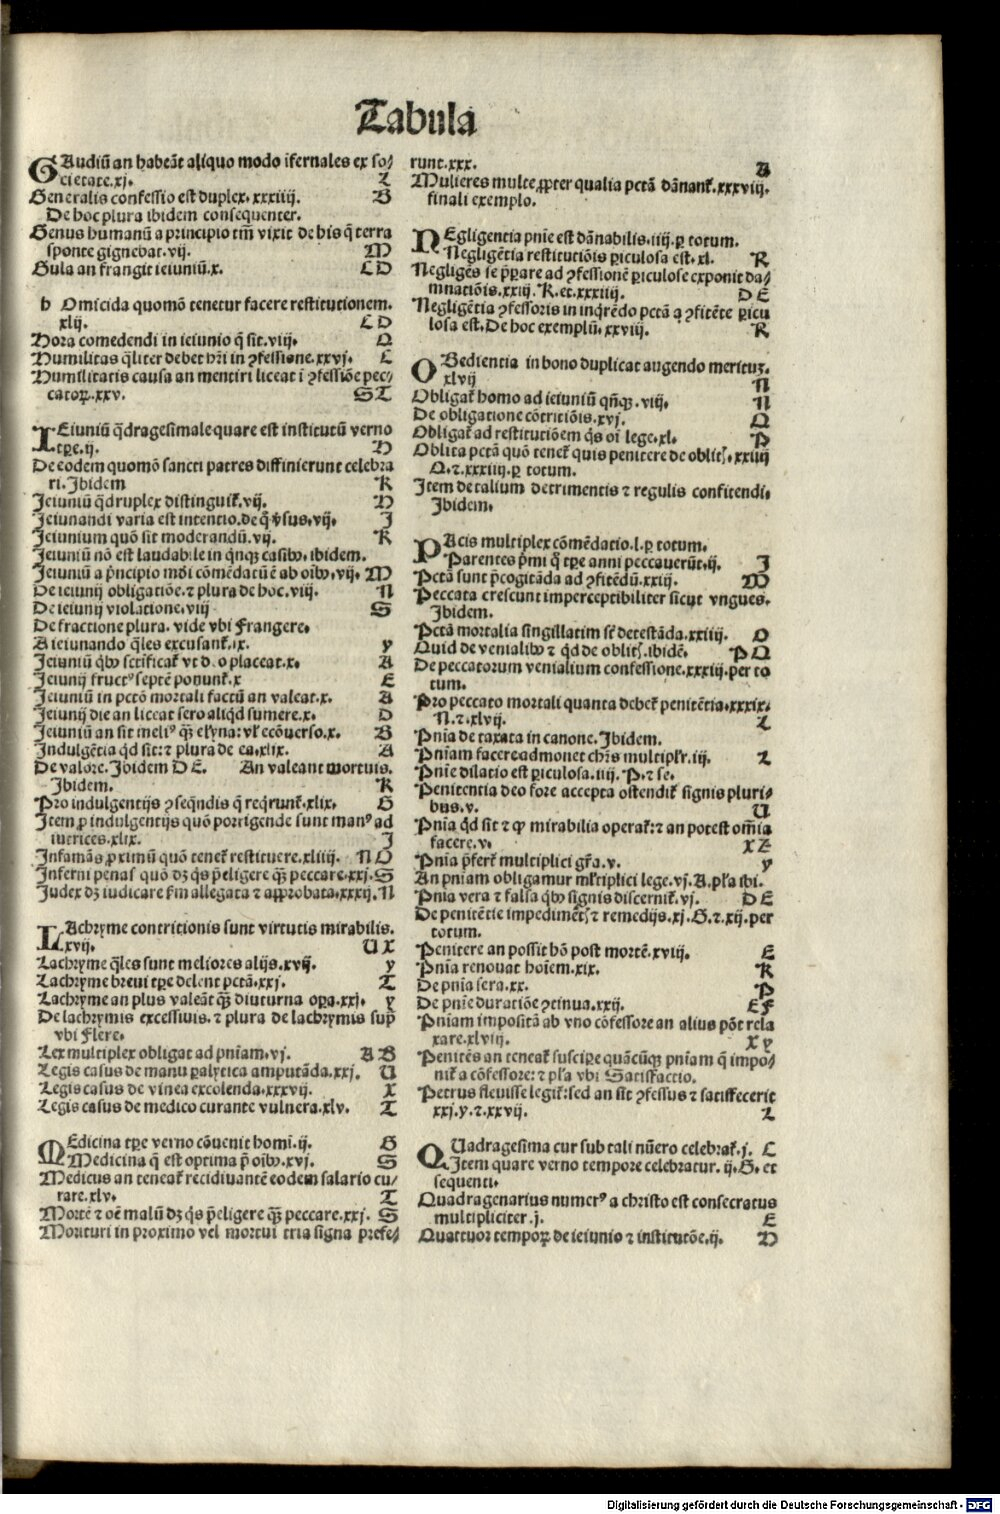 Tabula
GAudiū an habeāt aliquo modo īfernales ex so/
cietate.xj. Z
Generalis confessio est duplex.xxxiiij. B
De hoc plura ibidem consequenter.
Genus humanū a principio tm̄ vixit de his q̄ terra
sponte gignebat.vij. M
Gula an frangit ieiuniū.x. C D
h Omicida quomō tenetur facere restitutionem.
xlij. C D
Hora comedendi in ieiunio q̄ sit.viij. Q
Humilitas qͥliter debet hr̄i in ꝯfessione.xxvj. C
Humilitatis causa an mentiri liceat ī ꝯfessiōe pec/
catoꝝ.xxv. S T
IEiuniū qͣdragesimale quare est institutū verno
tꝑe.ij. H
De eodem quomō sancti patres diffinierunt celebra
ri. Ibidem K
Ieiuniū qͣdruplex distinguiť.vij. H
Ieiunandi varia est intentio.de q̄ ꝟsus.vij. I
Ieiunium quō sit moderandū.vij. K
Ieiuniū nō est laudabile in qͥnqꝫ casibꝰ.ibidem.
Ieiuniū a pͥncipio mōi cōmēdatū ē ab oībꝰ.vij. M
De ieiunij obligatiōe.⁊ plura de hoc.viij. N
De ieiunij violatione.viij S
De fractione plura. vide vbi Frangere.
A ieiunando qͣles excusanť.ix. y
Ieiuniū qͥbꝰ sctīficať vt d.o placeat.x. A
Ieiunij fructꝰ septē ponunť.x E
Ieiuniū in pctō mortali factū an valeat.x. A
Ieiunij die an liceat sero aliqͥd sumere.x. D
Ieiuniū an sit meliꝰ qͣꝫ elꝫyna: vľ ecōuerso.x. B
Indulgētia qͥd sit: ⁊ plura de ea.xlix. A
De valore. Ibidem D E. An valeant mortuis.
Ibidem. K
Pro indulgentijs ꝯseqͥndis q̄ reqͥrunť.xlix. G
Item ꝓ indulgentijs quō porrigende sunt manꝰ ad
iutrices.xlix. I
Infamās ꝓximū quō teneť restituere.xliiij. N O
Inferni penas quō dꝫ qͥs p̄eligere qͣꝫ peccare.xxj. S
Iudex dꝫ iudicare fm allegata ⁊ aꝓbata.xxxij. N
LAchryme contritionis sunt virtutis mirabilis.
xvij. U X
Lachryme qͣles sunt meliores alijs.xvij. y
Lachryme breui tꝑe delent pctā.xxj. T
Lachryme an plus valeāt qͣꝫ diuturna oꝑa.xxj. y
De lachrymis excessiuis.⁊ plura de lachrymis supͣ
vbi Flere.
Lex multiplex obligat ad pn̄iam.vj. A B
Legis casus de manu ꝑalytica amputāda.xxj. U
Legis casus de vinea excolenda.xxxvij. X
Legis casus de medico curante vulnera.xlv. T
MEdicina tꝑe verno cōuenit homi.ij. G
Medicina q̄ est optima p̄ oībꝰ.xvj. S
Medicus an teneať recidiuantē eodem salario cu/
rare.xlv. T
Mortē ⁊ oē malū dꝫ qͥs p̄eligere qͣꝫ peccare.xxj. S
Morituri in proximo vel mortui tria signa prefe/
runt.xxx. A
Mulieres multe ꝓpter qualia pctā dānanť.xxxvij.
finali exemplo.
NEgligentia pn̄ie est dānabilis.iiij.ꝑ totum.
Negligētia restitutiōis ꝑiculosa est.xl. R
Negligēs se p̄ꝑare ad ꝯfessionē ꝑiculose exponit da/
mnatiōis.xxij.R.et.xxxiiij. D E
Negligētia ꝯfessoris in inqͥrēdo pctā a ꝯfitēte ꝑicu
losa est. De hoc exemplū.xxviij. R
OBedientia in bono duplicat augendo meritū.
xlvij N
Obligať homo ad ieiuniū qn̄qꝫ.viij. N
De obligatione cōtritiōis.xvj. Q
Obligať ad restitutiōem qͥs oī lege.xl. P
Oblita pctā quō teneť quis penitere de oblitꝭ.xxiiij
Q.⁊.xxxiiij.ꝑ totum.
Item de talium detrimentis ⁊ regulis confitendi.
Ibidem.
PAcis multiplex cōmēdatio.l.ꝑ totum.
Parentes pͥmi q̄ tꝑe anni peccauerūt.ij. I
Pctā sunt p̄cogitāda ad ꝯfitēdū.xxiij. M
Peccata crescunt imperceptibiliter sicut vngues.
Ibidem.
Pctā mortalia singillatim st̄ detestāda.xxiiij. O
Quid de venialibꝰ ⁊ qͥd de oblitꝭ.ibidē. P Q
De peccatorum venialium confessione.xxxiij.per to
tum.
Pro peccato mortali quanta debeť penitētia.xxxix.
N.⁊.xlvij. L
Pn̄ia de taxata in canone. Ibidem.
Pn̄iam facere admonet chr̄s multipľr.iij. L
Pn̄ie dilatio est ꝑiculosa.iiij.P.⁊ se.
Penitentia deo fore accepta ostendiť signis pluri/
bus.v. U
Pn̄ia qͥd sit ⁊ ꝙ mirabilia operať: ⁊ an potest om̄ia
facere.v. X Z
Pn̄ia p̄ferť multiplici gr̄a.v. y
An pn̄iam obligamur mľtiplici lege.vj.A.pľa ibi.
Pn̄ia vera ⁊ falsa qͥbꝰ signis discerniť.vj. D E
De penitētie impedimētꝭ ⁊ remedijs.xj.G.⁊.xij.per
totum.
Penitere an possit hō post mortē.xviij. E
Pn̄ia renouat hoīem.xix. K
De pn̄ia sera.xx. P
De pn̄ie duratiōe ꝯtinua.xxij. E F
Pn̄iam impositā ab vno cōfessore an alius pōt rela
xare.xlviij. X y
Penitēs an teneať suscipe quācūqꝫ pn̄iam q̄ impo/
niť a cōfessore: ⁊ pľa vbi Satisfactio.
Petrus fleuisse legiť: sed an sit ꝯfessus ⁊ satisfecerit
xxj.y.⁊.xxvij. L
QUadragesima cur sub tali nūero celebrať.j. C
Item quare verno tempore celebratur.ij.G.et
sequenti.
Quadragenarius numerꝰ a christo est consecratus
multipliciter.j. E
Quattuor tempoꝝ de ieiunio ⁊ institutōe.ij. H
Digitalisierung gefördert durch die Deutsche Forschungsgemeinschaft - DFG